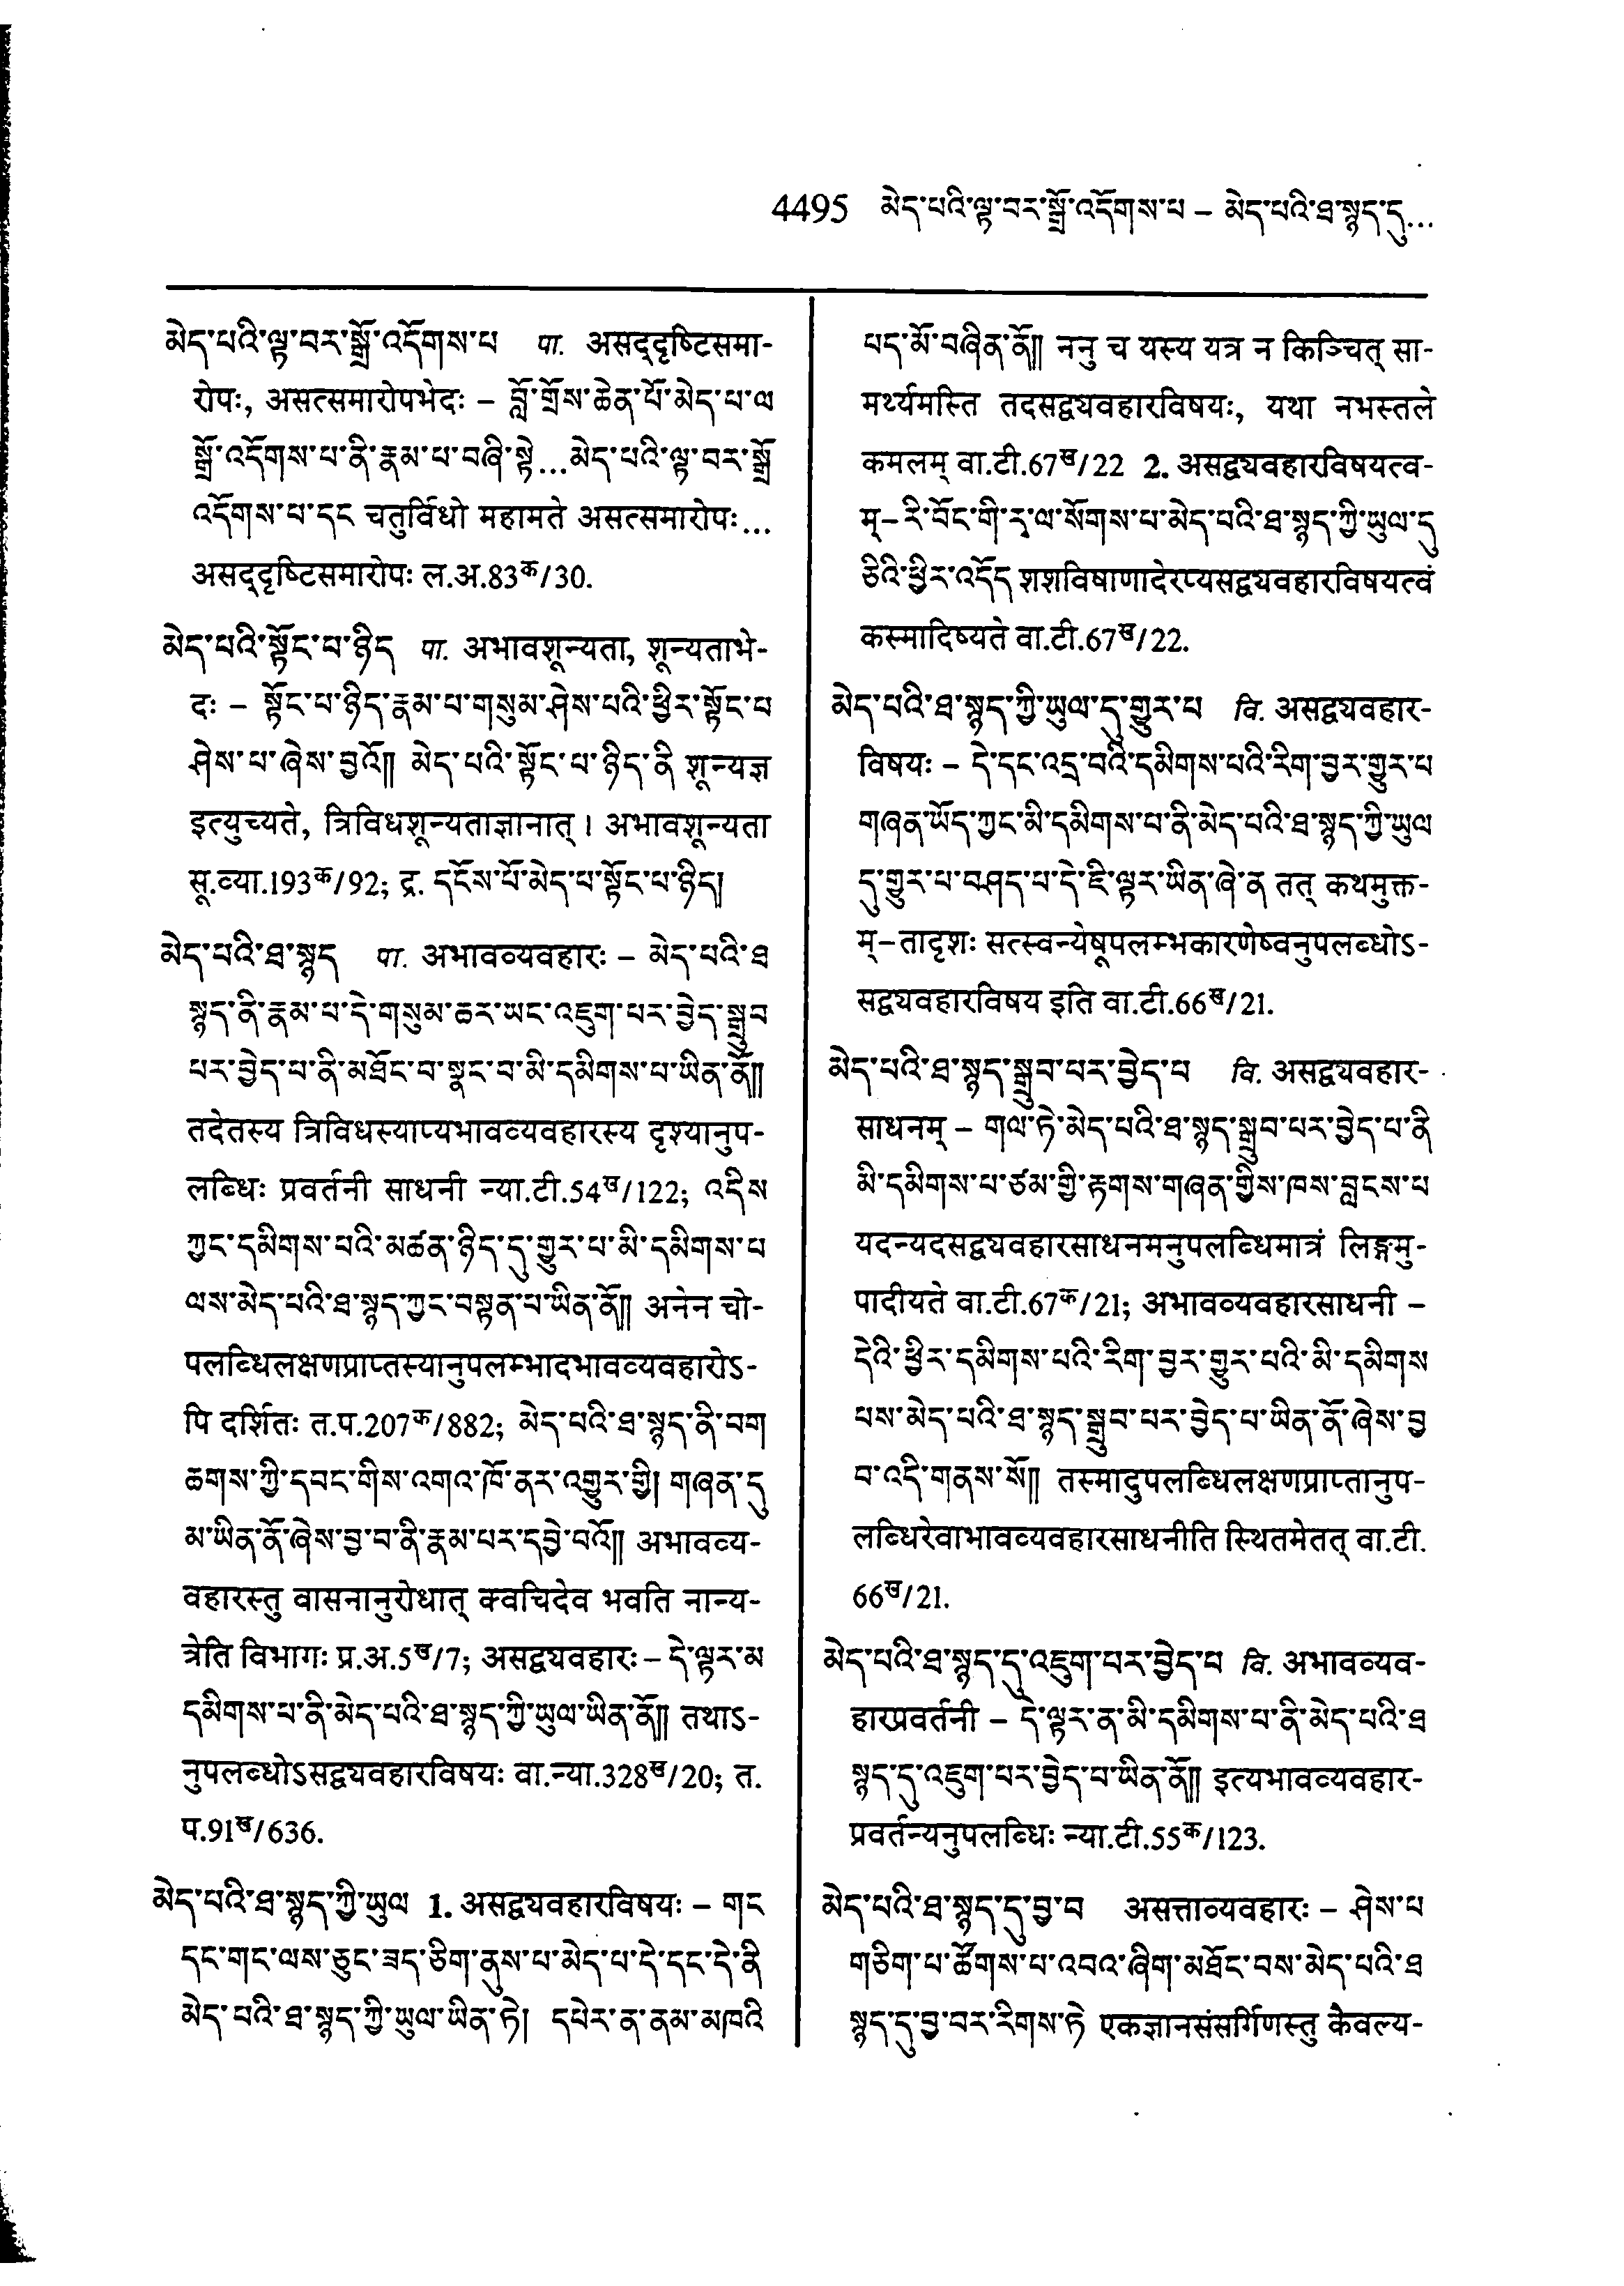 4495 མེད་པའི་ལྟ་བར་སྒྲོ་འདོགས་པ – མེད་པའི་ཐ་སྙད་དུ...
མེད་པའི་ལྟ་བར་སྒྲོ་འདོགས་པ पा. असद्दृष्टिसमा-
रोपः, असत्समारोपभेदः – བློ་གྲོས་ཆེན་པོ་མེད་པ་ལ
སྒྲོ་འདོགས་པ་ནི་རྣམ་པ་བཞི་སྟེ...མེད་པའི་ལྟ་བར་སྒྲོ
འདོགས་པ་དང चतुर्विधो महामते असत्समारोपः...
असद्दृष्टिसमारोपः ल.अ.83क/30.
མེད་པའི་སྟོང་པ་ཉིད पा. अभावशून्यता, शून्यताभे-
दः – སྟོང་པ་ཉིད་རྣམ་པ་གསུམ་ཤེས་པའི་ཕྱིར་སྟོང་པ
ཤེས་པ་ཞེས་བྱའོ།། མེད་པའི་སྟོང་པ་ཉིད་ནི शून्यज्ञ
इत्युच्यते, त्रिविधशून्यताज्ञानात्। अभावशून्यता
सू.व्या.193क/92; द्र. དངོས་པོ་མེད་པ་སྟོང་པ་ཉིད།
མེད་པའི་ཐ་སྙད पा. अभावव्यवहारः – མེད་པའི་ཐ
སྙད་ནི་རྣམ་པ་དེ་གསུམ་ཆར་ཡང་འཇུག་པར་བྱེད་སྒྲུབ
པར་བྱེད་པ་ནི་མཐོང་བ་སྣང་བ་མི་དམིགས་པ་ཡིན་ནོ།།
तदेतस्य त्रिविधस्याप्यभावव्यवहारस्य दृश्यानुप-
लब्धिः प्रवर्तनी साधनी न्या.टी.54ख/122; འདིས
ཀྱང་དམིགས་པའི་མཚན་ཉིད་དུ་གྱུར་པ་མི་དམིགས་པ
ལས་མེད་པའི་ཐ་སྙད་ཀྱང་བསྟན་པ་ཡིན་ནོ།། अनेन चो-
पलब्धिलक्षणप्राप्तस्यानुपलम्भादभावव्यवहारोऽ-
पि दर्शितः त.प.207क/882; མེད་པའི་ཐ་སྙད་ནི་བག
ཆགས་ཀྱི་དབང་གིས་འགའ་ཁོ་ནར་འགྱུར་གྱི། གཞན་དུ
མ་ཡིན་ནོ་ཞེས་བྱ་བ་ནི་རྣམ་པར་དབྱེ་བའོ།། अभावव्य-
वहारस्तु वासनानुरोधात् क्वचिदेव भवति नान्य-
त्रेति विभागः प्र.अ.5ख/7; असद्व्यवहारः – དེ་ལྟར་མ
དམིགས་པ་ནི་མེད་པའི་ཐ་སྙད་ཀྱི་ཡུལ་ཡིན་ནོ།། तथाऽ-
नुपलब्धोऽसद्व्यवहारविषयः वा.न्या.328ख/20; त.
प.91ख/636.
མེད་པའི་ཐ་སྙད་ཀྱི་ཡུལ 1. असद्व्यवहारविषयः – གང
དང་གང་ལས་ཅུང་ཟད་ཅིག་ནུས་པ་མེད་པ་དེ་དང་དེ་ནི
མེད་པའི་ཐ་སྙད་ཀྱི་ཡུལ་ཡིན་ཏེ། དཔེར་ན་ནམ་མཁའི
པད་མོ་བཞིན་ནོ།། ननु च यस्य यत्र न किञ्चित् सा-
मर्थ्यमस्ति तदसद्व्यवहारविषयः, यथा नभस्तले
कमलम् वा.टी.67ख/22 2. असद्व्यवहारविषयत्व-
म्– རི་བོང་གི་རྭ་ལ་སོགས་པ་མེད་པའི་ཐ་སྙད་ཀྱི་ཡུལ་དུ
ཅིའི་ཕྱིར་འདོད शशविषाणादेरप्यसद्व्यवहारविषयत्वं
कस्मादिष्यते वा.टी.67ख/22.
མེད་པའི་ཐ་སྙད་ཀྱི་ཡུལ་དུ་གྱུར་པ वि. असद्व्यवहार-
विषयः – དེ་དང་འདྲ་བའི་དམིགས་པའི་རིག་བྱར་གྱུར་པ
གཞན་ཡོད་ཀྱང་མི་དམིགས་པ་ནི་མེད་པའི་ཐ་སྙད་ཀྱི་ཡུལ
དུ་གྱུར་པ་བཤད་པ་དེ་ཇི་ལྟར་ཡིན་ཞེ་ན तत् कथमुक्त-
म्–तादृशः सत्स्वन्येषूपलम्भकारणेष्वनुपलब्धोऽ-
सद्व्यवहारविषय इति वा.टी.66ख/21.
མེད་པའི་ཐ་སྙད་སྒྲུབ་པར་བྱེད་པ वि. असद्व्यवहार-
साधनम् – གལ་ཏེ་མེད་པའི་ཐ་སྙད་སྒྲུབ་པར་བྱེད་པ་ནི
མི་དམིགས་པ་ཙམ་གྱི་རྟགས་གཞན་གྱིས་ཁས་བླངས་པ
यदन्यदसद्व्यवहारसाधनमनुपलब्धिमात्रं लिङ्गमु-
पादीयते वा.टी.67क/21; अभावव्यवहारसाधनी –
དེའི་ཕྱིར་དམིགས་པའི་རིག་བྱར་གྱུར་པའི་མི་དམིགས
པས་མེད་པའི་ཐ་སྙད་སྒྲུབ་པར་བྱེད་པ་ཡིན་ནོ་ཞེས་བྱ
བ་འདི་གནས་སོ།། तस्मादुपलब्धिलक्षणप्राप्तानुप-
लब्धिरेवाभावव्यवहारसाधनीति स्थितमेतत् वा.टी.
66ख/21.
མེད་པའི་ཐ་སྙད་དུ་འཇུག་པར་བྱེད་པ वि. अभावव्यव-
हारप्रवर्तनी – དེ་ལྟར་ན་མི་དམིགས་པ་ནི་མེད་པའི་ཐ
སྙད་དུ་འཇུག་པར་བྱེད་པ་ཡིན་ནོ།། इत्यभावव्यवहार-
प्रवर्तन्यनुपलब्धिः न्या.टी.55क/123.
མེད་པའི་ཐ་སྙད་དུ་བྱ་བ असत्ताव्यवहारः – ཤེས་པ
གཅིག་པ་ཚོགས་པ་འབའ་ཞིག་མཐོང་བས་མེད་པའི་ཐ
སྙད་དུ་བྱ་བར་རིགས་ཏེ एकज्ञानसंसर्गिणस्तु कैवल्य-